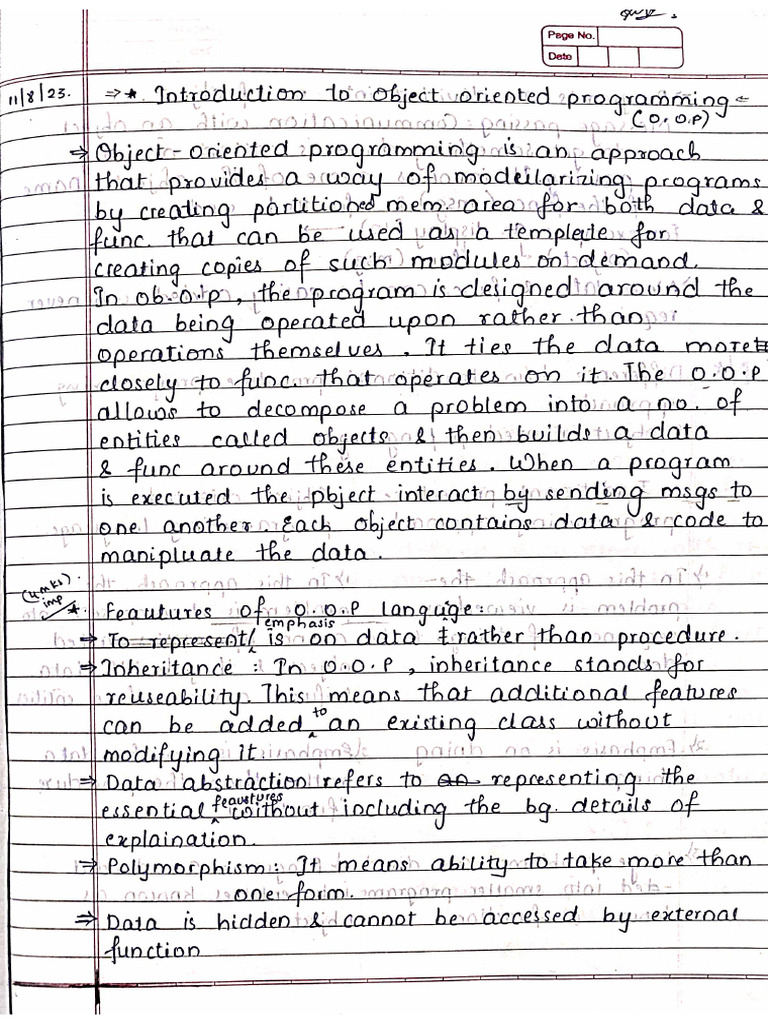 Page No.
Date
11/8/23.
⇒ * Introduction to object oriented programming -
(O.O.P)
⇒ Object-oriented programming is an approach
that provides a way of modularizing programs
by creating partitioned mem area for both data &
func that can be used as a template for
creating copies of such modules on demand.
In ob.o.p, the program is designed around the
data being operated upon rather than
operations themselves. It ties the data more
closely to func. that operates on it. The O.O.P
allows to decompose a problem into a no. of
entities called objects & then builds a data
& func around these entities. When a program
is executed the object interact by sending msgs to
one another Each object contains data & code to
manipluate the data.
(4mks)
imp
* Feautures of O.O.P languige:
emphasis
⇒ To represent is on data rather than procedure.
⇒ Inheritance : In O.O.P, inheritance stands for
reuseability. This means that additional features
can be added to an existing class without
modifying it
⇒ Data abstraction refers to an representing the
essential feautures without including the bg. details of
explaination.
⇒ Polymorphism: It means ability to take more than
one form.
⇒ Data is hidden & cannot be accessed by external
function